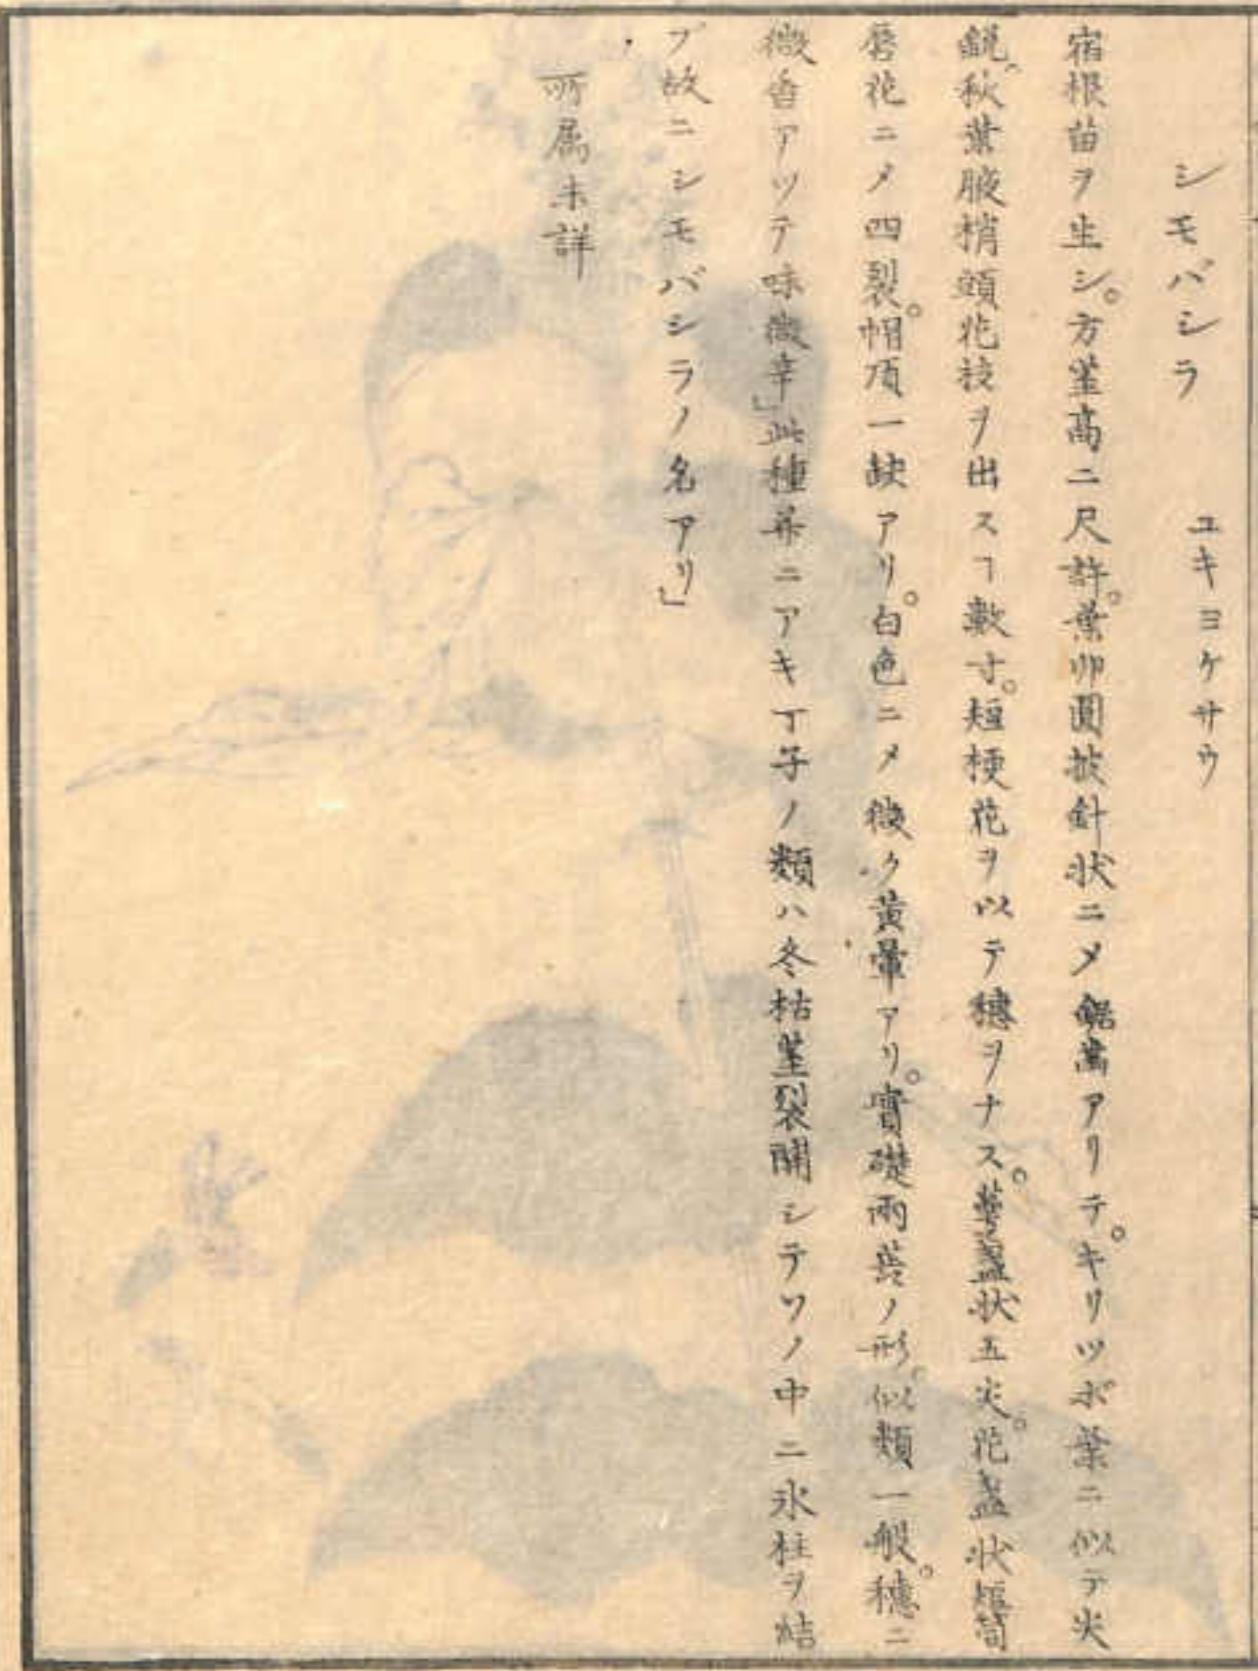 シモバシラ ユキヨケサウ
宿根苗ヲ生シ。方莖高二尺許。葉卵圓披針状ニメ鋸歯アリテ。キリツボ葉ニ似テ尖
鋭。秋葉腋梢頭花枝ヲ出スヿ數寸。短梗花ヲ以テ穗ヲナス。萼盞状五尖。花盞状短筒
唇花ニメ四裂。帽頂一缺アリ。白色ニメ微ク黄暈アリ。實礎兩蕊ノ形。似類一般。穗ニ
微香アツテ味微辛」此種并ニアキ丁子ノ類ハ冬枯莖裂開シテソノ中ニ氷柱ヲ結
ブ故ニシモバシラノ名アリ」
所属未詳